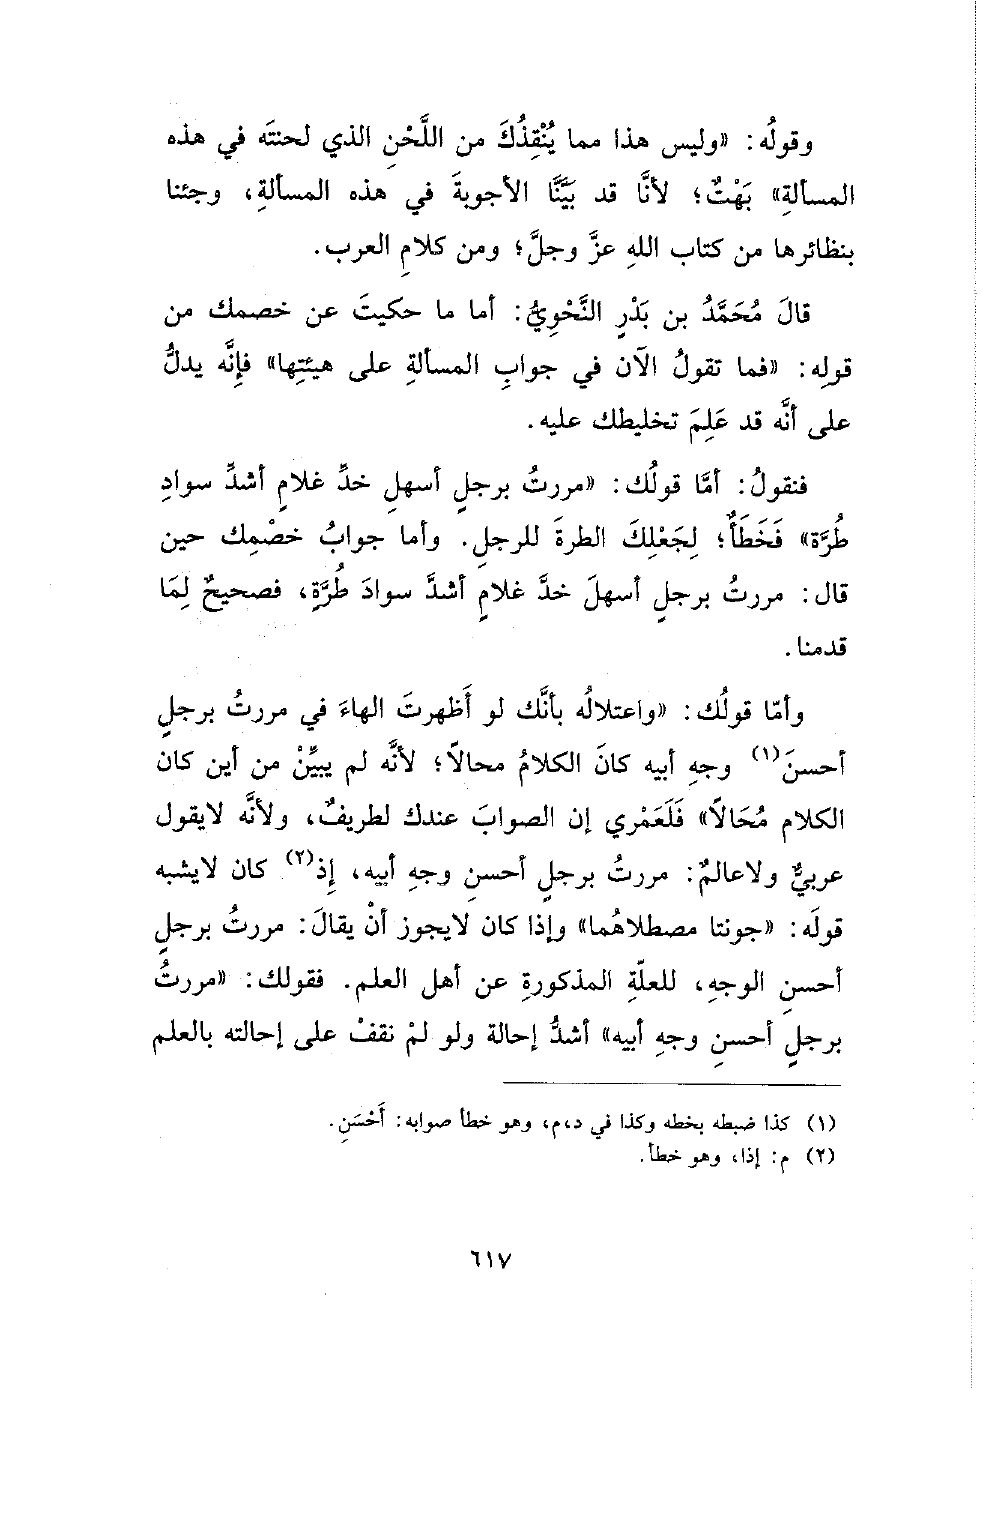 وقولُه: «وليس هذا مما يُنْقِذُكَ من اللَّحْنِ الذي لحنتَه في هذه
المسألةِ» بَهْتٌ؛ لأنَّا قد بَيَّنَّا الأجوبةَ في هذه المسألةِ، وجئنا
بنظائرها من كتاب اللهِ عزَّ وجلَّ؛ ومن كلامِ العرب.
قالَ مُحَمَّدُ بن بَدْرٍ النَّحْوِيُّ: أما ما حكيتَ عن خصمك من
قولِه: «فما تقولُ الآن في جوابِ المسألةِ على هيئتِها» فإِنَّه يدلُّ
على أنَّه قد عَلِمَ تخليطك عليه.
فنقولُ: أمَّا قولُك: «مررتُ برجلٍ أسهلِ خدِّ غلامٍ أشدِّ سوادِ
طُرَّة» فَخَطَأٌ؛ لِجَعْلِكَ الطرةَ للرجلِ. وأما جوابُ خصْمِك حين
قال: مررتُ برجلٍ أسهلَ خدَّ غلامٍ أشدَّ سوادَ طُرَّةٍ، فصحيحٌ لِمَا
قدمنا.
وأمّا قولُك: «واعتلالُه بأنَّك لو أَظهرتَ الهاءَ في مررتُ برجلٍ
أحسنَ(١) وجهِ أبيه كانَ الكلامُ محالاً؛ لأنَّه لم يبيِّنْ من أين كان
الكلام مُحَالاً» فَلَعَمْري إن الصوابَ عندك لطريفٌ، ولأنَّه لايقول
عربيٌّ ولاعالمٌ: مررتُ برجلٍ أحسنِ وجهِ أبيه، إِذ(٢) كان لايشبه
قولَه: «جونتا مصطلاهُما» وإذا كان لايجوز أنْ يقالَ: مررتُ برجلٍ
أحسنِ الوجهِ، للعلّةِ المذكورةِ عن أهل العلم. فقولك: «مررتُ
برجلٍ أحسنِ وجهِ أبيه» أشدُّ إحالة ولو لمْ نقفْ على إحالته بالعلم
(١) كذا ضبطه بخطه وكذا في د،م، وهو خطأ صوابه: أَحْسَنِ.
(٢) م: إذا، وهو خطأ.
٦١٧